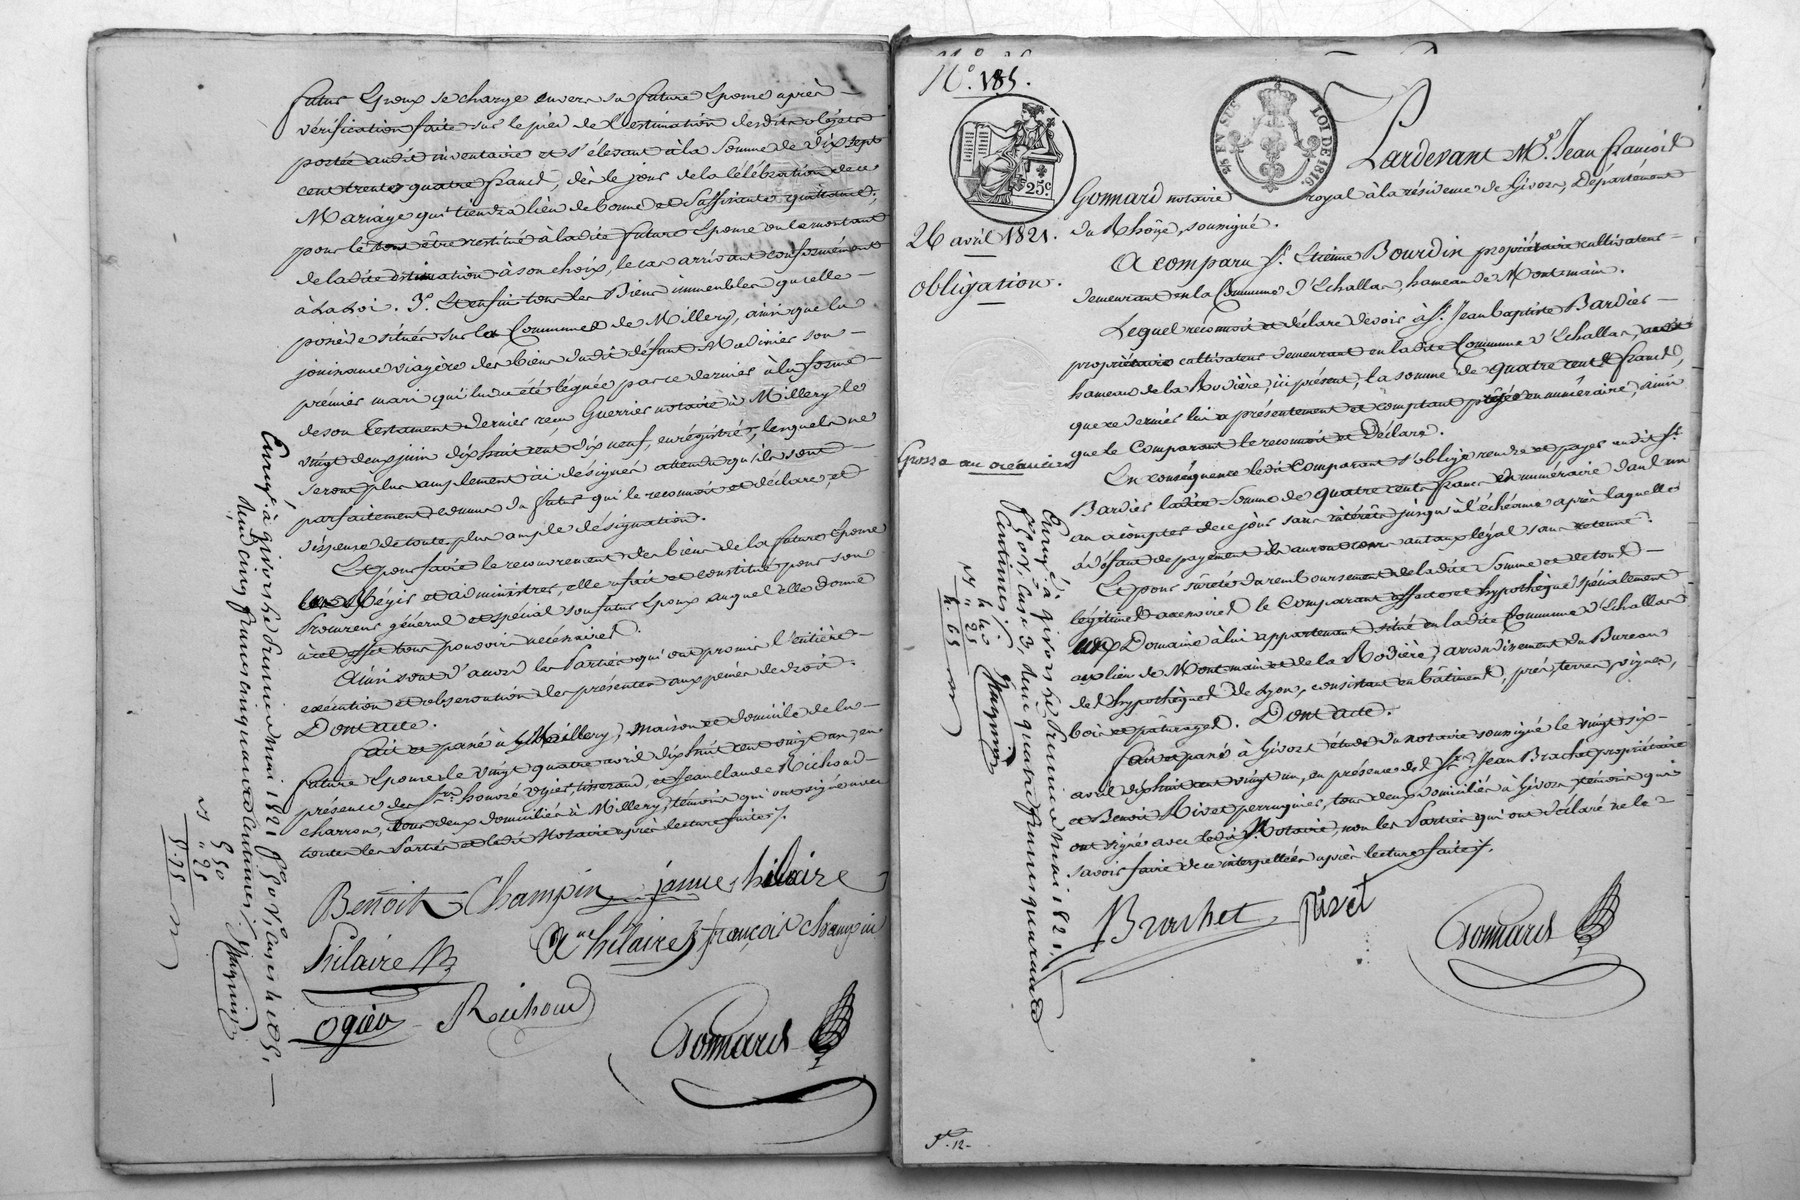 futur Epoux se charge envers sa future Epouse après
vérification faite sur le pied de l'estimation desdits objets
portée audit inventaire et s'élevant à la Somme de dix sept
cent trente quatre francs, dès le jour de la Célébration de ce
Mariage qui tiendra lieu de bonne et suffisante quittance,
pour le tout être restitué à ladite future Epouse ou le montant
de ladite estimation à son choix, le cas arrivant conformément
à la Loi. 3.° Et enfin tous les Biens immeubles qu'elle
possède situés sur la Commune de Millery, ainsi que la
jouissance viagère des biens dudit défunt Madinier son
prémier mari qui lui a été léguée par ce dernier à la forme
de son Testament dernier reçu Guerrier notaire à Millery le
vingt deux juin dix huit cent dix neuf, enrégistré, lesquels ne
seront plus amplement ici désignés attendu qu'ils sont
parfaitement connus du futur qui le reconnoit et déclare, et
dispense de toute plus ample désignation.
Et pour faire le recouvrement des biens de la future Epouse
les Régir et administrer, elle a fait et constitué pour son
Procureur général et spécial son futur Epoux auquel elle donne
à cet effet tous pouvoirs nécéssaires.
Ainsi sont d'accord les Parties qui ont promis l'entière
exécution et observation des présentes aux peines de droit.
Dont acte.
Fait et passé à Millery, maison et domicile de la
future Epouse le vingt quatre avril dix huit cent vingt un, en
présence des Srs honoré ogier, tisserand, et Jean Claude Richoud
charron, tous deux domiciliés à Millery, témoins qui ont signé avec
toutes les Parties et ledit Notaire après lecture faite ∫.
Benoit Champin jannes hilaire
hilaire hilaire françois champin
ogier Richoud
Gonnard
Enregé à givors le deux mai 1821 fo. 60 Vo. Cases 4 et 5.
Reçu cinq francs cinquante centimes ∫.
5 50
" 25
5.75
N.° 185.
25c
25 EN SUS LOI DE 1816.
26 avril 1821.
obligation.
Grosse au créancier
Pardevant M.e Jean François
Gonnard notaire royal à la résidence de Givors, Département
du Rhône, soussigné.
A comparu S.r Etienne Bourdin propriétaire cultivateur
demeurant en la Commune d'Echallas, hameau de Montmain.
Lequel reconnoit et déclare devoir à S.r Jean baptiste Bardier
propriétaire cultivateur demeurant en ladite Commune d'Echallas,
hameau de la Rodière, ici présent, la somme de quatre cent francs,
que ce dernier lui a présentement et comptant prêtée en numéraire, ainsi
que le Comparant le reconnoit et Déclare.
En conséquence ledit Comparant s'oblige rendre et payer audit S.r
Bardier ladite Somme de quatre cents francs en numéraire dans un
an à compter de ce jour sans intérêts jusqu'à l'échéance après laquelle
à défaut de payement ils auront cours au taux légal sans retenue.
Et pour sûreté du remboursement de ladite Somme et de tous
légitimes accessoires le Comparant affecte et hypothèque spécialement
un Domaine à lui appartenant situé en ladite Commune d'Echallas
aux lieux de Montmain et de la Rodière, arrondissement du Bureau
des hypothèques de Lyon, consistant en bâtiment, prés, terres, vignes,
bois et pâturages. Dont acte.
Fait et passé à Givors étude du notaire soussigné le vingt six
avril dix huit cent vingt un, en présence des Srs Jean Brachet propriétaire
et Benoit Rivet perruquier, tous deux domiciliés à Givors, témoins qui
ont signé avec ledit Notaire, non les Parties qui ont déclaré ne le
savoir faire de ce interpellées après lecture faite ∫.
Brachet Rivet
Gonnard
Enregé à givors le deux mai 1821.
fo. 60 Vo. Case 3, Reçu quatre francs quarante
centimes ∫.
4 40
" 25
4.65